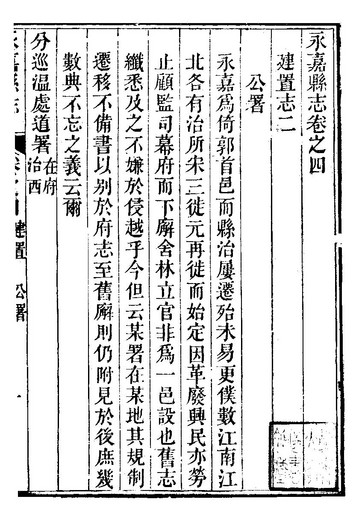 永嘉縣志卷之四
建置志二
公署
永嘉爲倚郭首邑而縣治屢遷殆未易更僕數江南江
北各有治所宋三徙元再徙而始定因革廢興民亦勞
止顧監司幕府而下廨舍林立官非爲一邑設也舊志
纖悉及之不嫌於侵越乎今但云某署在某地其規制
遷移不備書以别於府志至舊廨則仍附見於後庶幾
數典不忘之義云爾
分巡温處道署在府治西
建置 公署